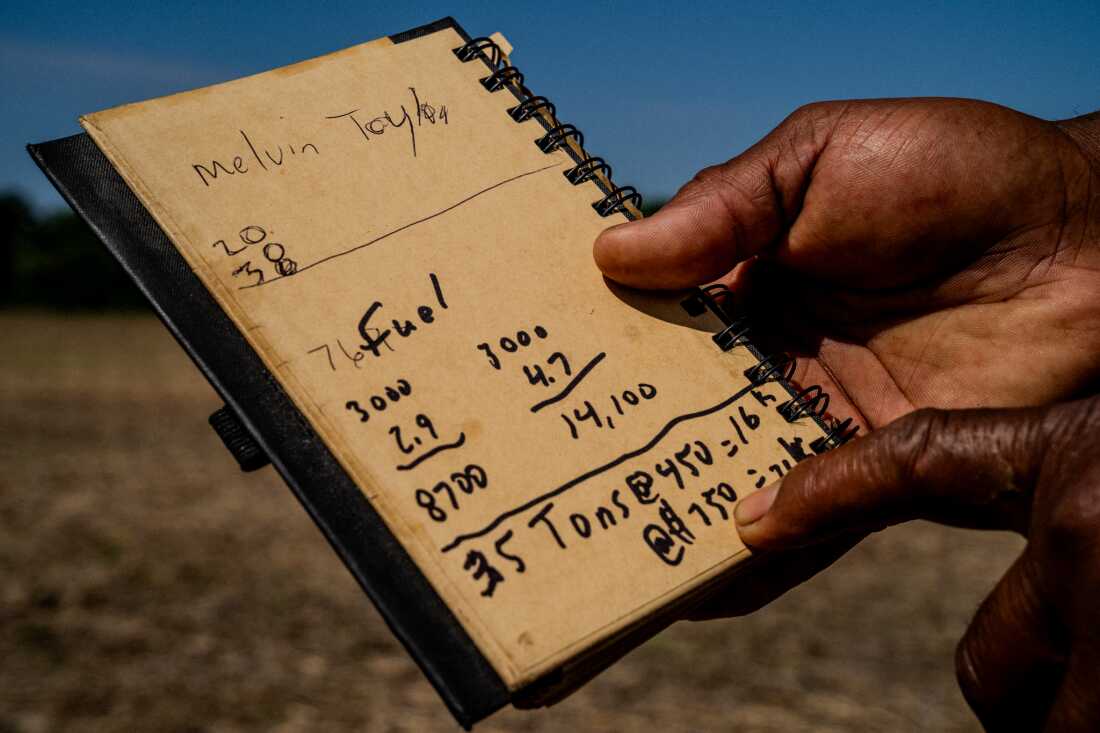 Melvin Taylor
20
30
Fuel
3000
2.9
8700
3000
4.7
14,100
35 Tons @ 450 = 16k
@ $750 =